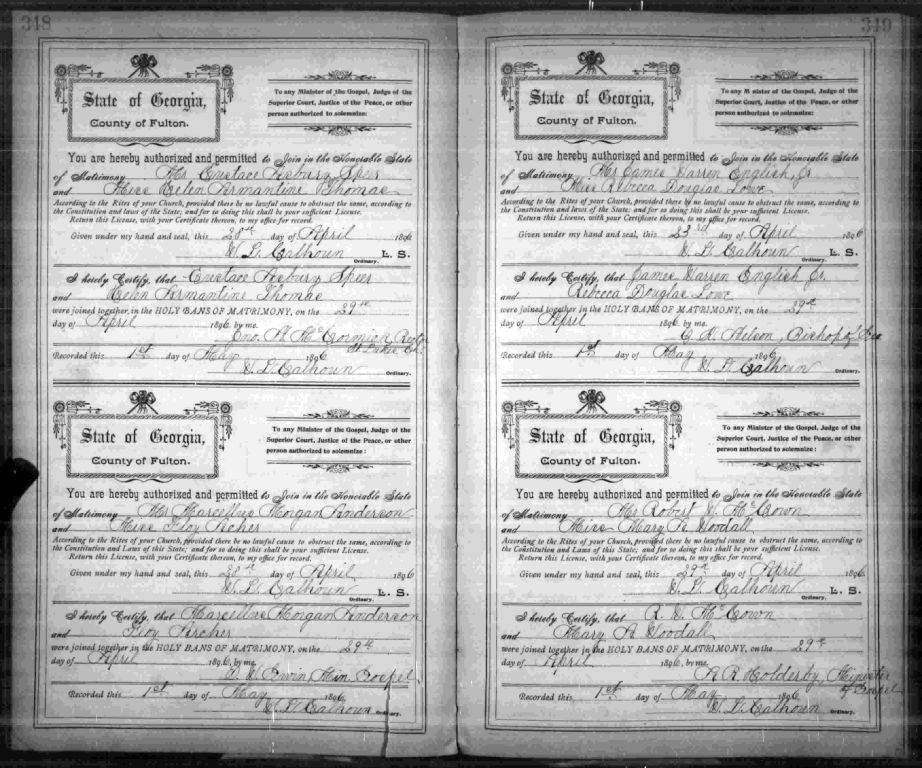 348
State of Georgia,
County of Fulton.
To any Minister of the Gospel, Judge of the
Superior Court, Justice of the Peace, or other
person authorized to solemnize:
You are hereby authorized and permitted to Join in the Honorable State
of Matrimony Mr Eustace Asbury Speer
and Miss Helen Armantine Thomas
According to the Rites of your Church, provided there be no lawful cause to obstruct the same, according to
the Constitution and laws of this State; and for so doing this shall be your sufficient License.
Return this License, with your Certificate thereon, to my office for record.
Given under my hand and seal, this 28th day of April 1896
W. L. Calhoun L. S.
Ordinary.
I hereby Certify, that Eustace Asbury Speer
and Helen Armantine Thomas
were joined together, in the HOLY BANS OF MATRIMONY, on the 29th
day of April 1896 by me.
Jno. N McCormick Rector
St Lukes
Recorded this 1st day of May 1896
W. L. Calhoun Ordinary.
State of Georgia,
County of Fulton.
To any Minister of the Gospel, Judge of the
Superior Court, Justice of the Peace, or other
person authorized to solemnize:
You are hereby authorized and permitted to Join in the Honorable State
of Matrimony Mr Marcellus Morgan Anderson
and Miss Floy Archer
According to the Rites of your Church, provided there be no lawful cause to obstruct the same, according to
the Constitution and Laws of this State; and for so doing this shall be your sufficient License.
Return this License, with your Certificate thereon, to my office for record.
Given under my hand and seal, this 28th day of April 1896
W. L. Calhoun L. S.
Ordinary.
I hereby Certify, that Marcellus Morgan Anderson
and Floy Archer
were joined together, in the HOLY BANS OF MATRIMONY, on the 29th
day of April 1896, by me,
Erwin Min. Gospel
Recorded this 1st day of May 1896
W. L. Calhoun Ordinary.
349
State of Georgia,
County of Fulton.
To any Minister of the Gospel, Judge of the
Superior Court, Justice of the Peace, or other
person authorized to solemnize:
You are hereby authorized and permitted to Join in the Honorable State
of Matrimony Mr James Warren English, Jr
and Miss Rebecca Douglas Lowe
According to the Rites of your Church, provided there be no lawful cause to obstruct the same, according to
the Constitution and laws of this State; and for so doing this shall be your sufficient License.
Return this License, with your Certificate thereon, to my office for record.
Given under my hand and seal, this 23rd day of April 1896
W. L. Calhoun L. S.
Ordinary.
I hereby Certify, that James Warren English Jr
and Rebecca Douglas Lowe
were joined together in the HOLY BANS OF MATRIMONY, on the 29th
day of April 1896 by me.
C. K. Nelson, Bishop of Geo
Recorded this 1st day of May 1896
W. L. Calhoun Ordinary.
State of Georgia,
County of Fulton.
To any Minister of the Gospel, Judge of the
Superior Court, Justice of the Peace, or other
person authorized to solemnize:
You are hereby authorized and permitted to Join in the Honorable State
of Matrimony Mr Robert D. McCown
and Miss Mary A. Woodall
According to the Rites of your Church, provided there be no lawful cause to obstruct the same, according to
the Constitution and Laws of this State; and for so doing this shall be your sufficient License.
Return this License, with your Certificate thereon, to my office for record.
Given under my hand and seal, this 29th day of April 1896
W. L. Calhoun L. S.
Ordinary.
I hereby Certify, that R. D. McCown
and Mary A Woodall
were joined together in the HOLY BANS OF MATRIMONY, on the 29th
day of April 1896, by me.
A. R. Holderby, Minister
of Gospel
Recorded this 1st day of May 1896
W. L. Calhoun Ordinary.